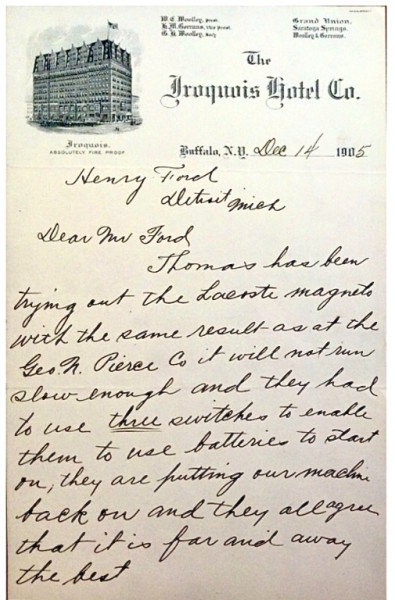 W. E. Woolley, Prest.
R. M. Gerrans, Vice Prest.
G. H. Woolley, Secy
Grand Union,
Saratoga Springs.
Woolley & Gerrans.
The
Iroquois Hotel Co.
Iroquois.
ABSOLUTELY FIRE PROOF
Buffalo, N.Y. Dec 14 1905
Henry Ford
Detroit Mich
Dear Mr Ford
Thomas has been
trying out the Lacoste magneto
with the same result as at the
Geo. N. Pierce Co it will not run
slow enough and they had
to use three switches to enable
them to use batteries to start
on, they are putting our machine
back on and they all agree
that it is far and away
the best